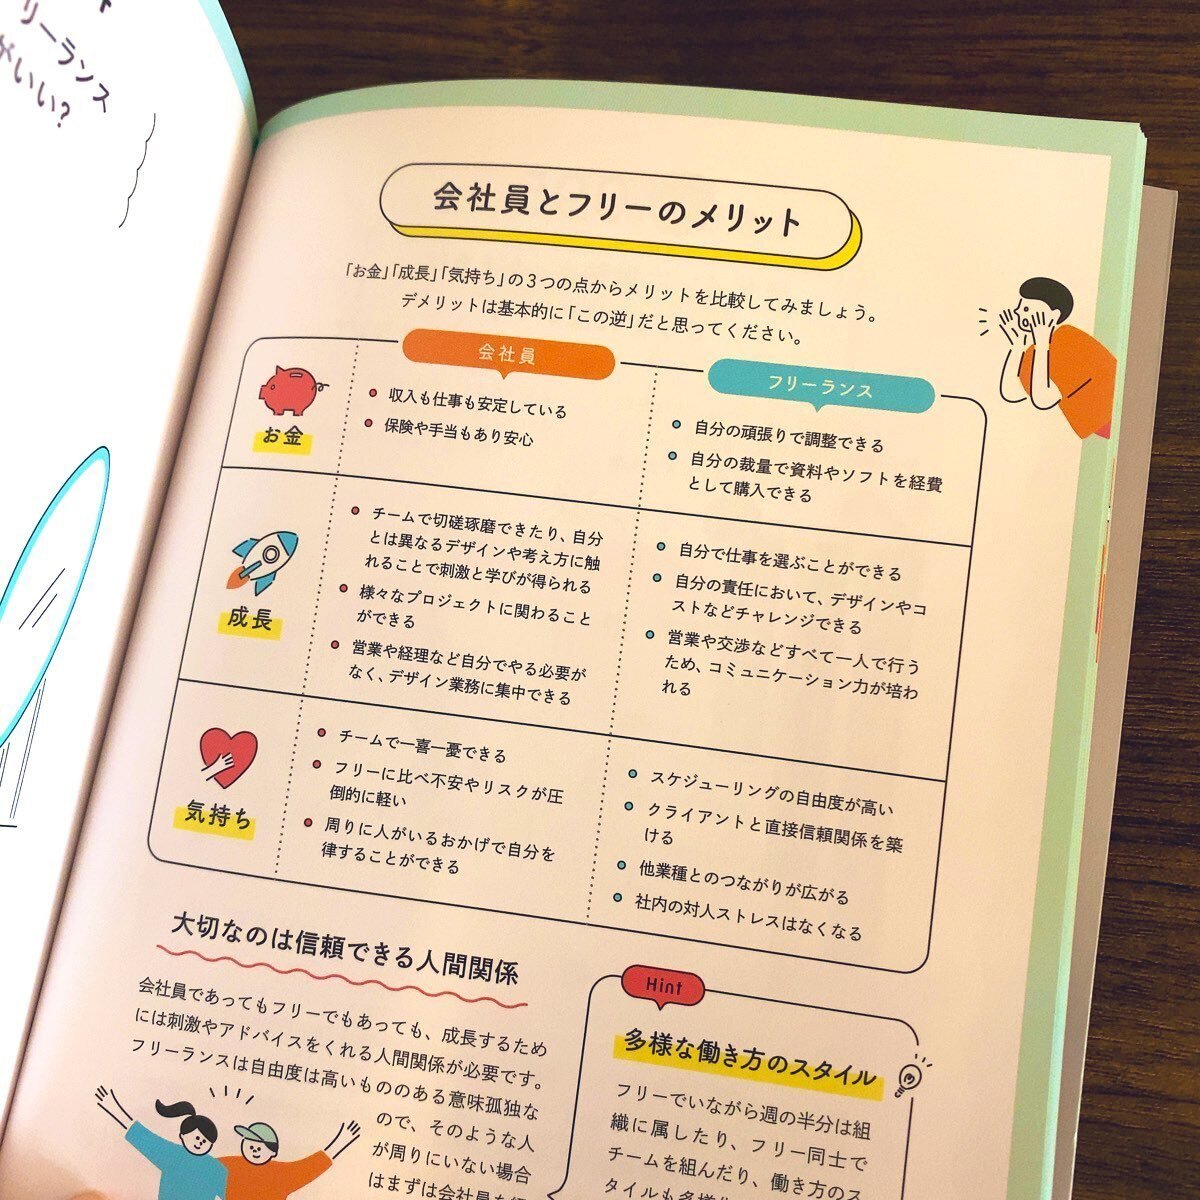 リーランス
がいい?
会社員とフリーのメリット
「お金」「成長」「気持ち」の3つの点からメリットを比較してみましょう。
デメリットは基本的に「この逆」だと思ってください。
会社員
フリーランス
お金
収入も仕事も安定している
保険や手当もあり安心
自分の頑張りで調整できる
自分の裁量で資料やソフトを経費
として購入できる
成長
チームで切磋琢磨できたり、自分
とは異なるデザインや考え方に触
れることで刺激と学びが得られる
様々なプロジェクトに関わること
ができる
営業や経理など自分でやる必要が
なく、デザイン業務に集中できる
自分で仕事を選ぶことができる
自分の責任において、デザインやコ
ストなどチャレンジできる
営業や交渉などすべて一人で行う
ため、コミュニケーション力が培わ
れる
気持ち
チームで一喜一憂できる
フリーに比べ不安やリスクが圧
倒的に軽い
周りに人がいるおかげで自分を
律することができる
スケジューリングの自由度が高い
クライアントと直接信頼関係を築
ける
他業種とのつながりが広がる
社内の対人ストレスはなくなる
大切なのは信頼できる人間関係
会社員であってもフリーでもあっても、成長するため
には刺激やアドバイスをくれる人間関係が必要です。
フリーランスは自由度は高いもののある意味孤独な
ので、そのような人
が周りにいない場合
はまずは会社員を
Hint
多様な働き方のスタイル
フリーでいながら週の半分は組
織に属したり、フリー同士で
チームを組んだり、働き方のス
タイルも多様